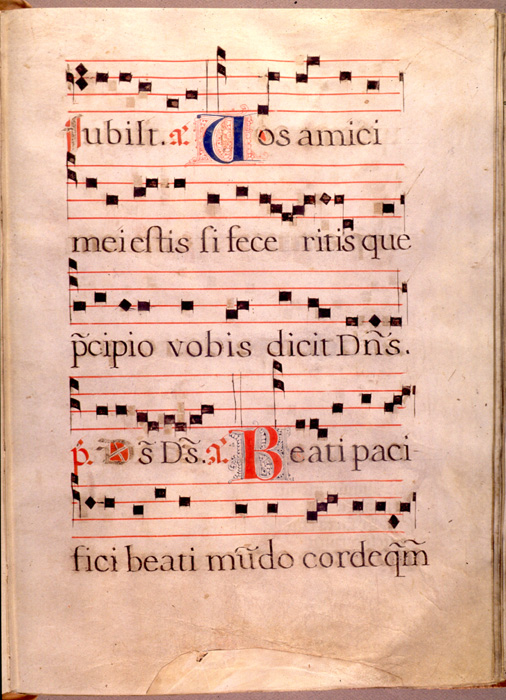 Jubilt. a. Vos amici
mei estis si fece ritis que
p̃cipio vobis dicit Dñs.
p̃. Ds̃ Ds̃. a. Beati paci-
fici beati mũdo corde q̃m̃